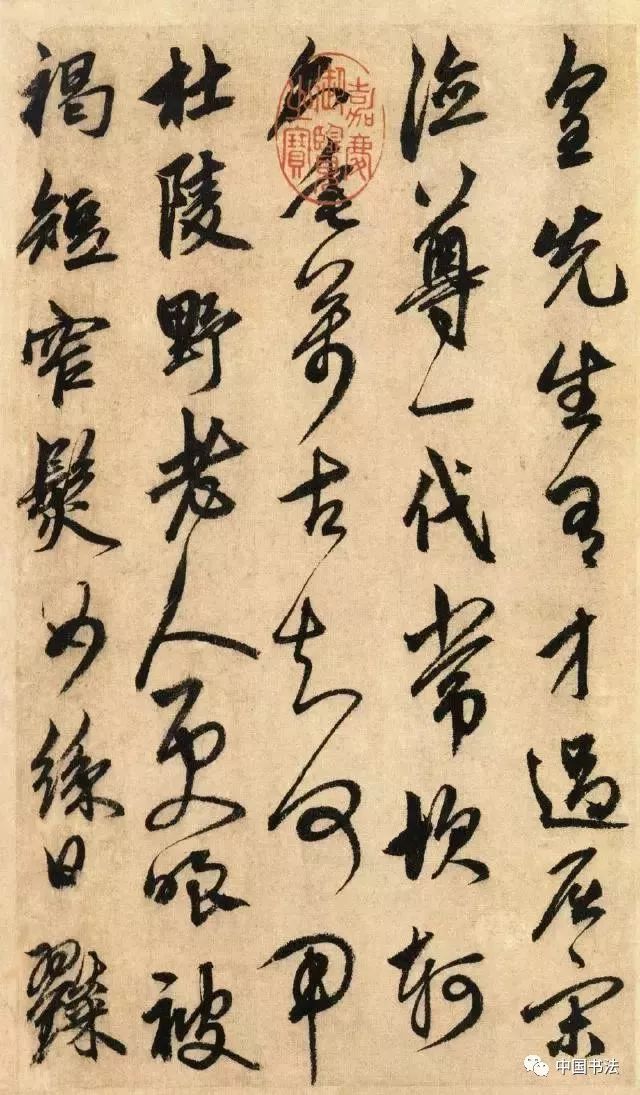 皇先生有才過屈宋
德尊一代常坎軻
名垂萬古知何用
杜陵野老人更嗤被
褐短窄鬢如絲日糴
嘉慶御覽之寶
中国书法